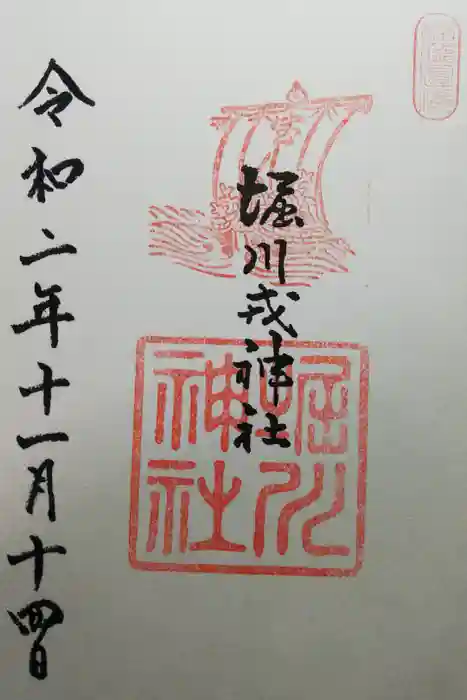 堀川戎神社
堀川
神社
令和二年十一月十四日